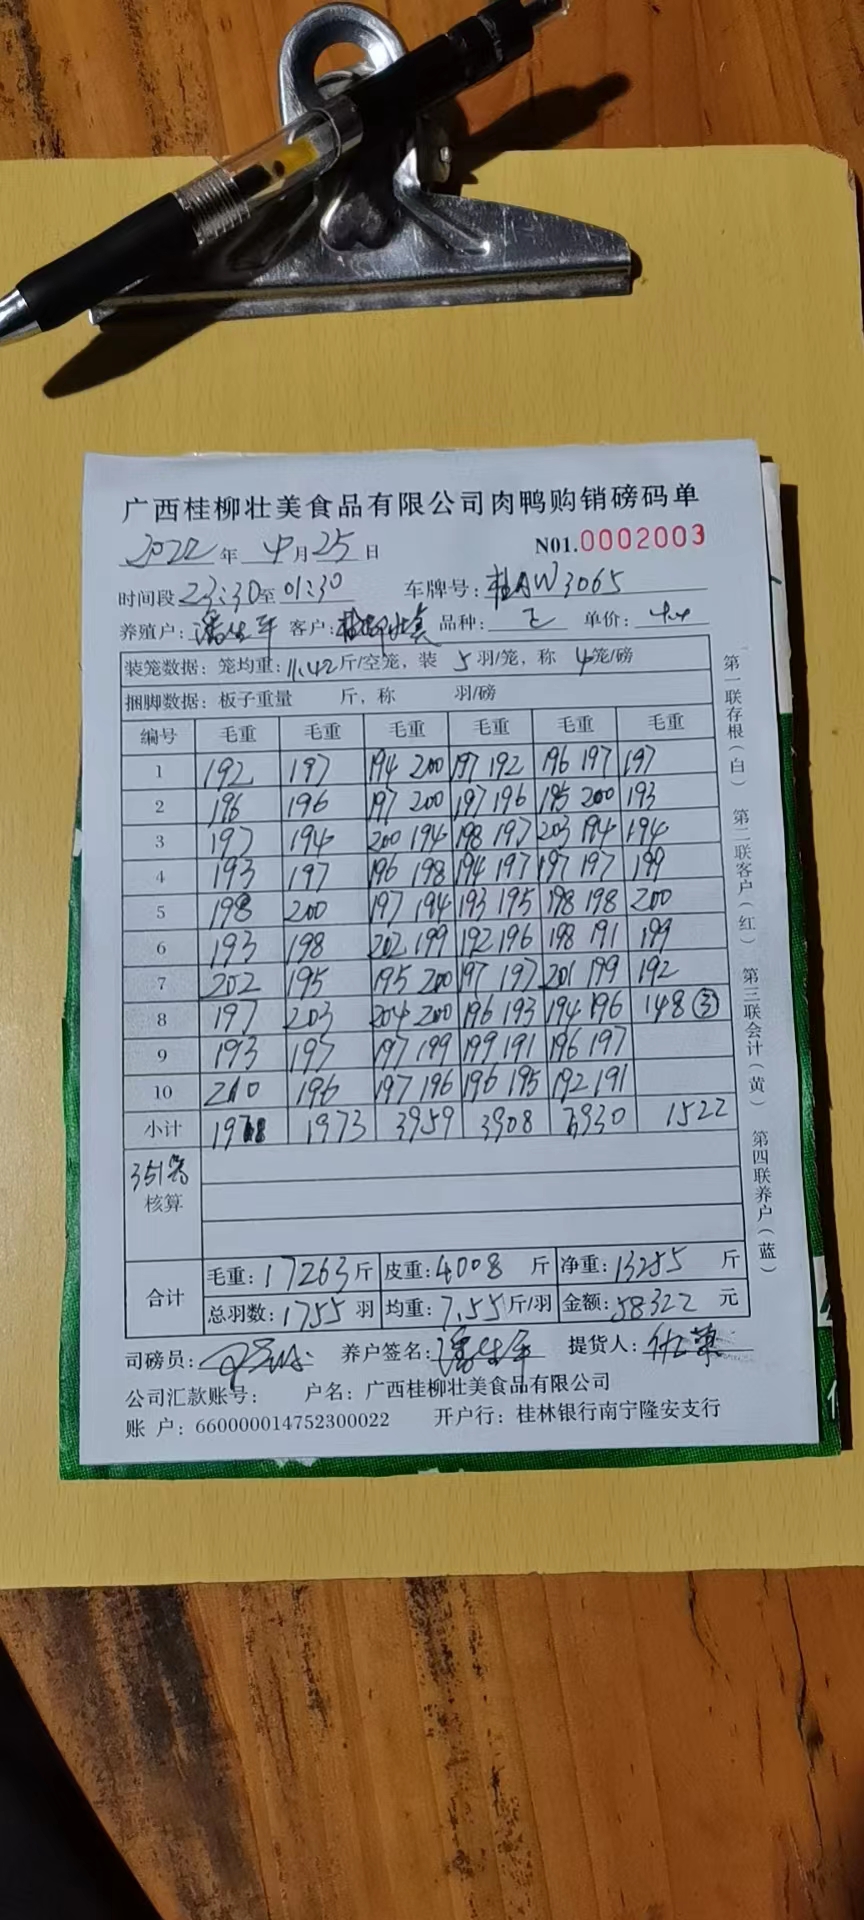 广西桂柳壮美食品有限公司肉鸭购销磅码单
2022年 4月25日 N01.0002003
时间段23:30至01:30 车牌号:桂AW3065
养殖户:潘生平 客户:桂柳壮美 品种: 单价:4.4
装笼数据:笼均重:11.42斤/空笼,装 5羽/笼,称 4笼/磅
捆脚数据:板子重量 斤,称 羽/磅
编号 毛重 毛重 毛重 毛重 毛重 毛重
1 192 197 194 200 197 192 196 197 197
2 196 196 197 200 197 196 195 200 193
3 197 194 200 194 198 197 203 194 194
4 193 197 196 198 194 197 197 197 199
5 198 200 197 194 193 195 198 198 200
6 193 198 202 199 192 196 198 191 199
7 202 195 195 200 197 197 201 199 192
8 197 203 204 200 196 193 194 196 148 ③
9 193 197 197 199 199 191 196 197
10 210 196 197 196 196 195 192 191
小计 1973 3959 3908 3930 1522
351笼
核算
合计 毛重:17263斤 皮重:4008 斤 净重:13255 斤
总羽数:1755 羽 均重:7.55斤/羽 金额:58322 元
司磅员: 养户签名:潘生平 提货人:
公司汇款账号: 户名:广西桂柳壮美食品有限公司
账 户:660000014752300022 开户行:桂林银行南宁隆安支行
第一联存根(白) 第二联客户(红) 第三联会计(黄) 第四联养户(蓝)